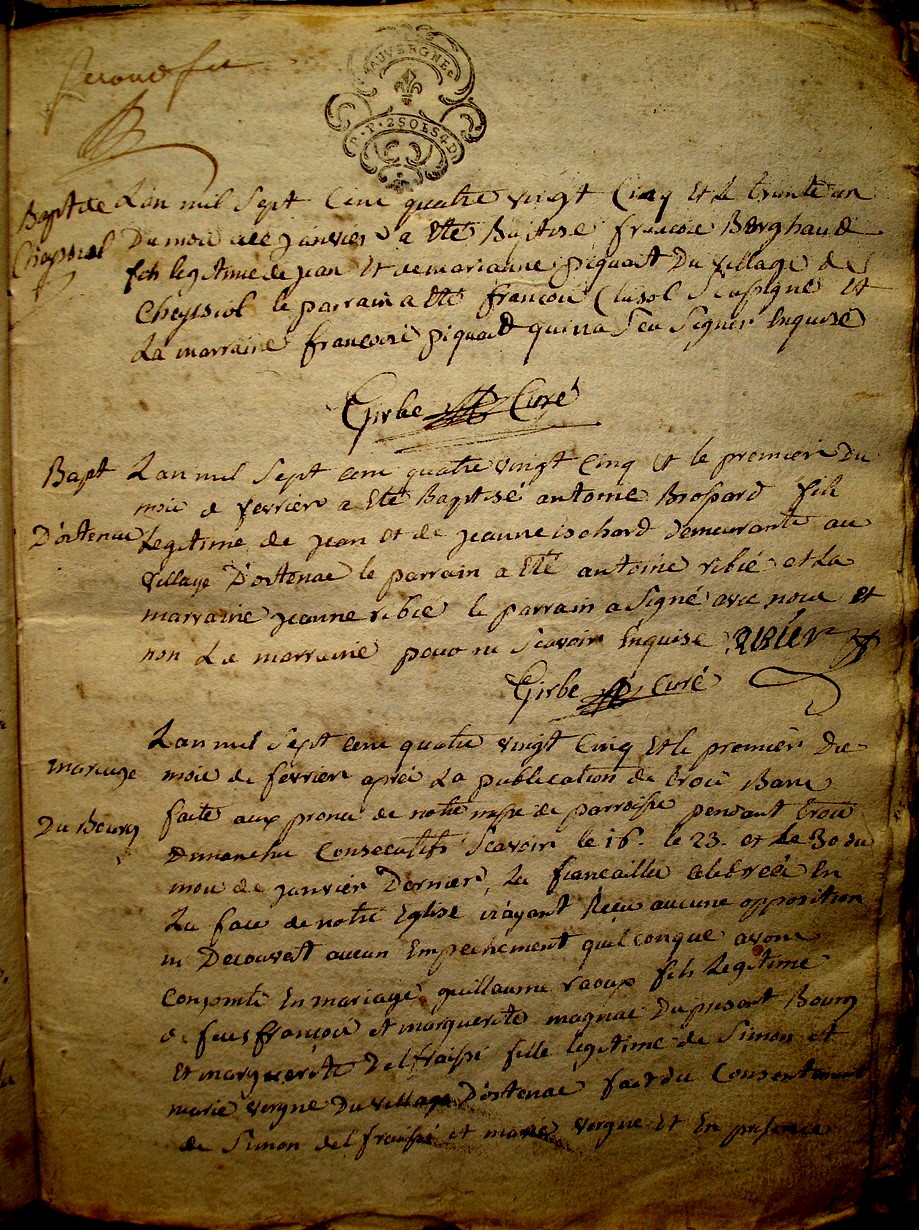 second feu
AUVERGNE
D.P. 2SOLS 4D
Bapt de
Cheyssiol
Lan mil Sept Cent quatre vingt Cinq Et le trente un
Du mois de janvier a Eté Baptisé françois Berghaud
fils legitime de jean Et de marianne piquait Du village de
Cheyssiol le parrain a Eté françois Clusol Soussigné Et
La marraine françoise piquait qui na Seu Signer Enquise
Girbe Curé
Bapt
D'ostenac
Lan mil Sept cent quatre vingt Cinq Et le premier du
mois de fevrier a Eté Baptisé antoine Brossard fils
Legitime de jean et de jeanne isohard demeurants au
village D'ostenac le parrain a Eté antoine ribié et La
marraine jeanne ribié le parrain a Signé avec nous Et
non La marraine pour ne Scavoir Enquise RIBIER
Girbe Curé
mariage
Du Bourg
Lan mil Sept cent quatre vingt Cinq Et le premier Du
mois de fevrier après La publication de trois Bans
faite aux prone de notre messe de parroisse pendant trois
Dimanches Consecutifs Scavoir le 16. le 23. et le 30 du
mois de janvier Dernier, La fiancailles celebrées En
La face de notre Eglise n'ayant Reçu aucune opposition
ni Decouvert aucun Empechement quelconque avons
Conjoints En mariage guillaume raoux fils Legitime
de feus françois et marguerite magnac Du present Bourg
Et marguerite Delfraissi fille legitime de Simon et
marie vergne Du village D'ostenac fait du Consentement
de Simon delfraissi et marie vergne et En presence